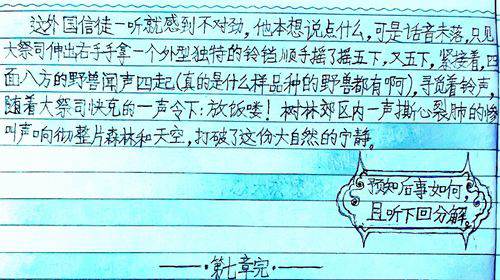 这外国信徒一听就感到不对劲，他本想说点什么，可是话音未落，只见
大祭司伸出右手手拿一个外型独特的铃铛顺手摇了摇五下，又五下，紧接着，四
面八方的野兽闻声四起（真的是什么样品种的野兽都有啊），寻觅着铃声，
随着大祭司快克的一声令下：放饭喽！树林郊区内一声撕心裂肺的惨
叫声响彻整片森林和天空，打破了这份大自然的宁静。
预知后事如何，
且听下回分解。
——·第七章完·——